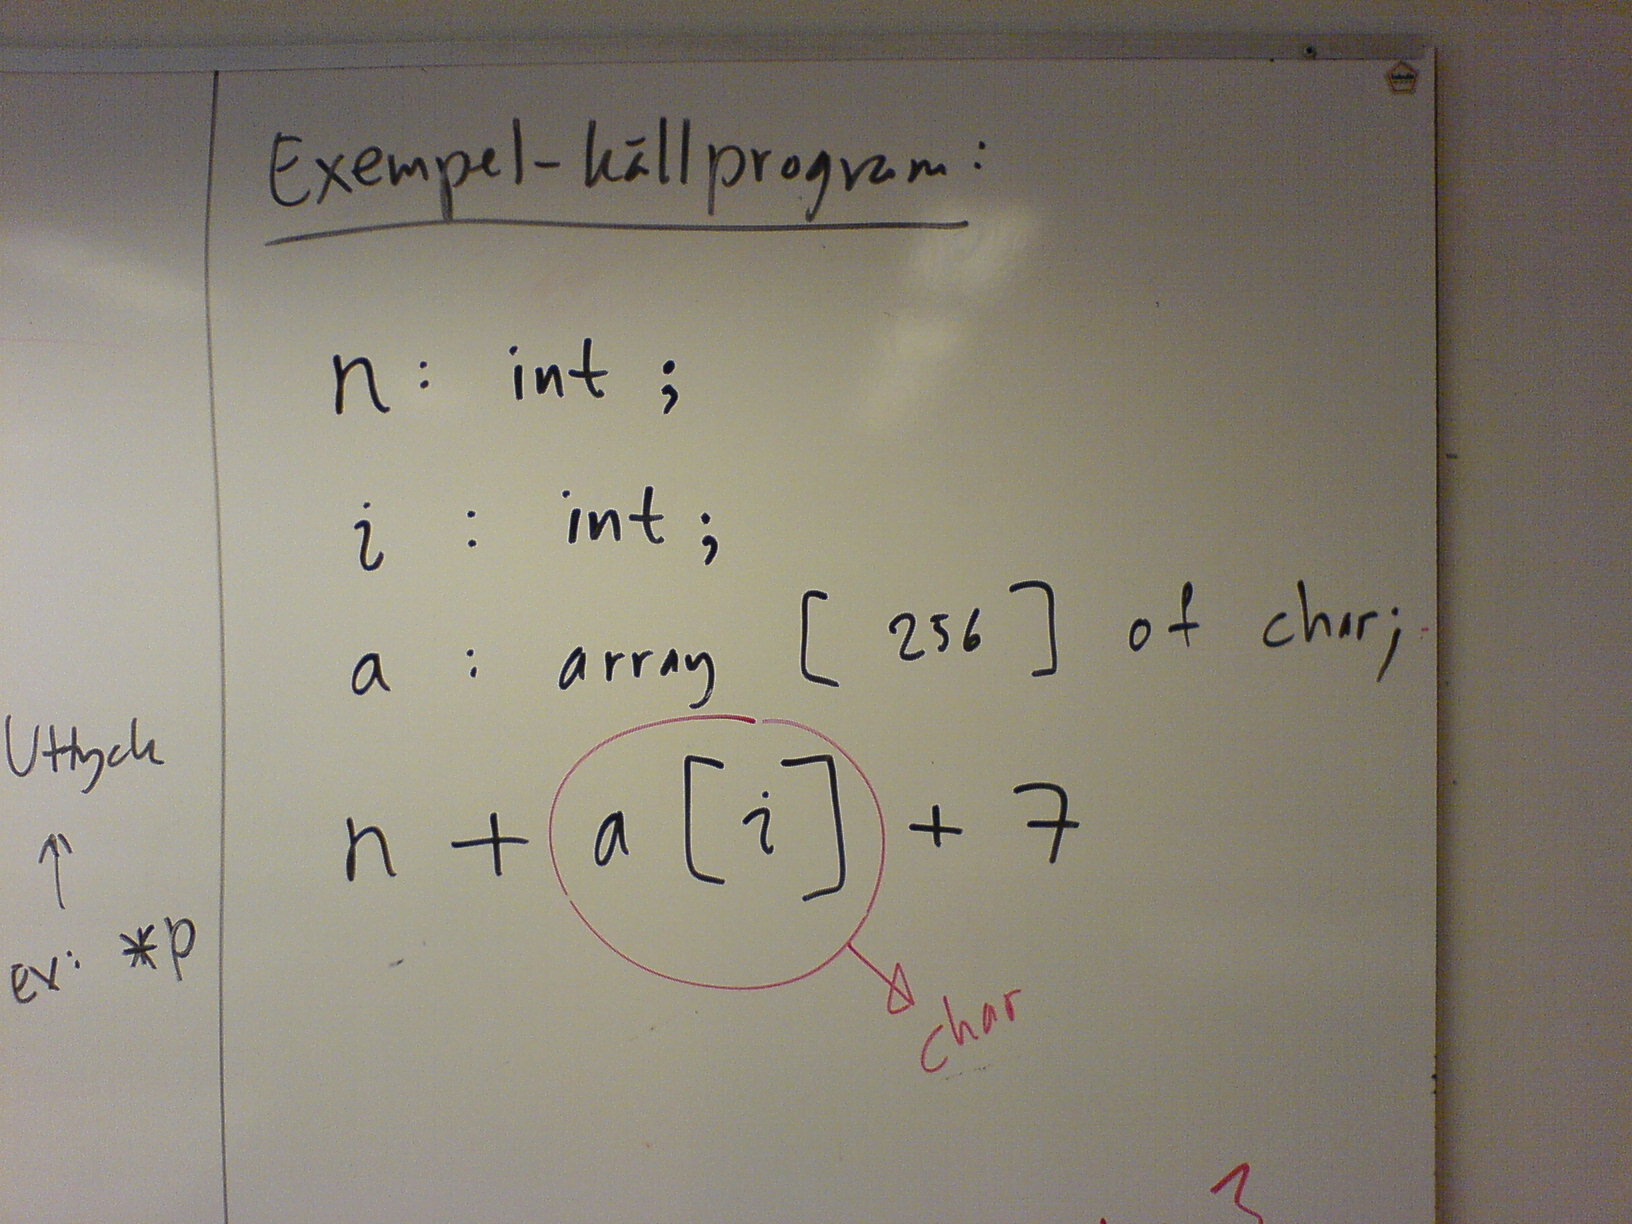 Exempel-källprogram:
n: int ;
i : int;
a : array [ 256 ] of char;
n + a [ i ] + 7
char
Uttryck
ex: *p